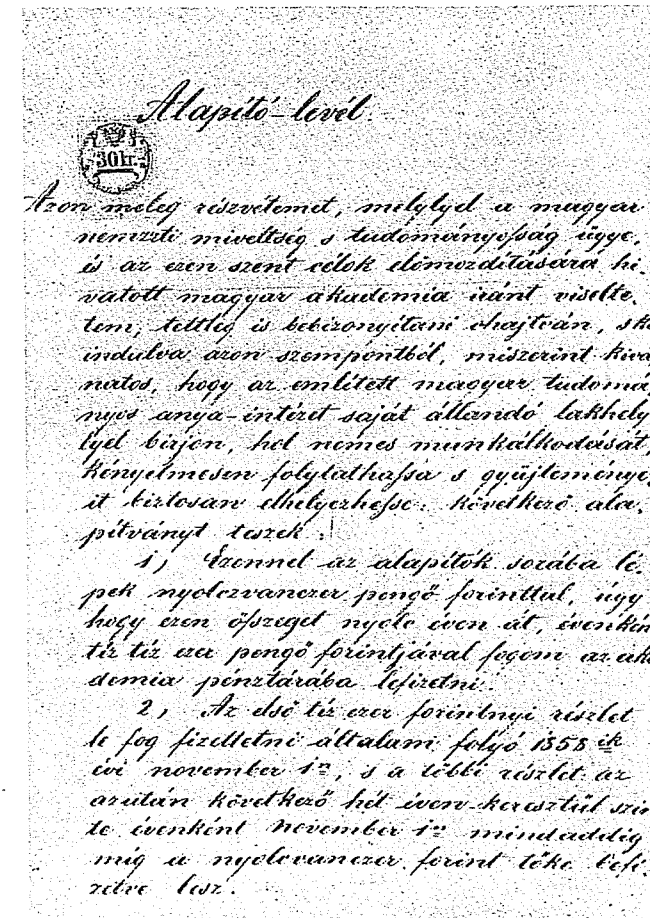 Alapító-levél.
30 kr.
Azon meleg részvétemet, melylyel a magyar
nemzeti miveltség s tudományosság ügye,
és az ezen szent célok előmozdítására hi-
vatott magyar akadémia iránt viselte-
tem, tettleg is bebizonyítani ohajtván, s ki
indulva azon szempontból, miszerint kivá
natos, hogy az említett magyar tudomá
nyos anya-intézet saját állandó lakhely
lyel bírjon, hol nemes munkálkodását,
kényelmesen folytathassa s gyüjteménye-
it biztosan elhelyezhesse: következő ala-
pítványt teszek:
1, Ezennel az alapítók sorába lé-
pek nyolczvanezer pengő forinttal, úgy
hogy ezen összeget nyolc éven át, évenkin
tíz tíz ezer pengő forintjával fogom az aka
demia pénztárába lefizetni.
2, Az első tíz ezer forintnyi részlet
le fog fizettetni általam folyó 1858 ik
évi november 1n, s a többi részlet az
azután következő hét éven keresztül szin
te évenként november 1n mindaddig
míg a nyolcvanezer forint tőke befi-
zetve lesz.